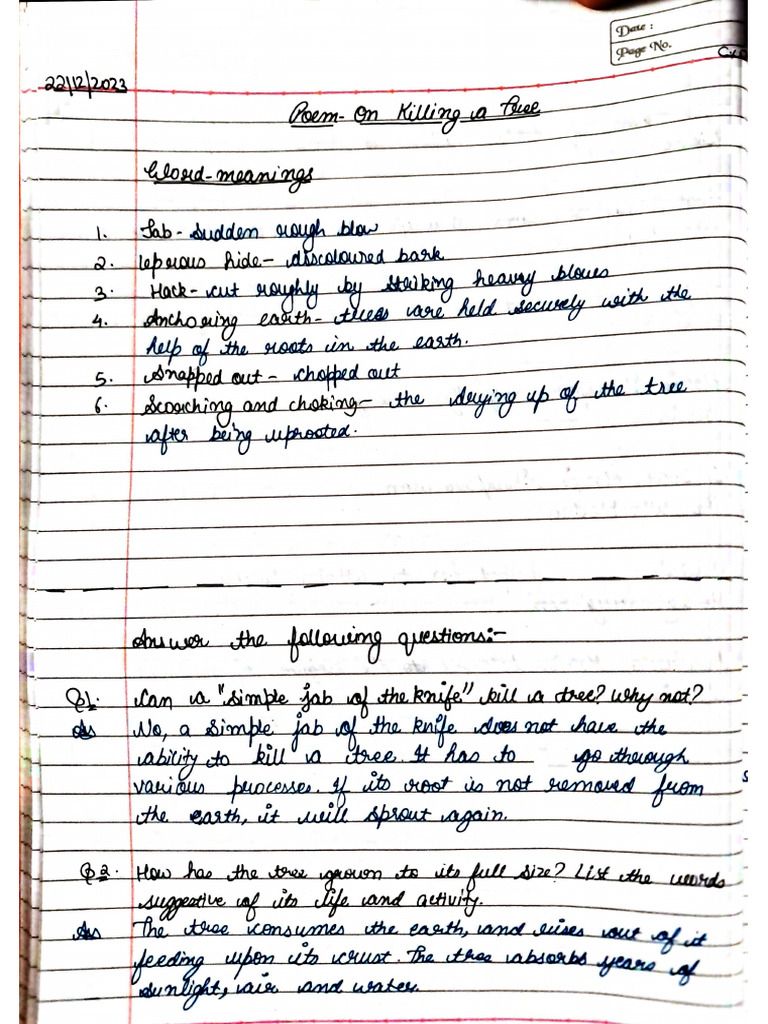 Date :
Page No.
22/12/2023
Poem- On Killing a Tree
Word-meanings
1. Jab- sudden rough blow
2. leprous hide- discoloured bark
3. Hack- cut roughly by striking heavy blows
4. Anchoring earth- trees are held securely with the
help of the roots in the earth.
5. Snapped out- chopped out
6. Scorching and choking- the drying up of the tree
after being uprooted.
Answer the following questions:-
Q1. Can a "simple jab of the knife" kill a tree? Why not?
As No, a simple jab of the knife does not have the
ability to kill a tree. It has to go through
various processes. If its root is not removed from
the earth, it will sprout again.
Q2. How has the tree grown to its full size? List the words
suggestive of its life and activity.
As The tree consumes the earth, and rises out of it
feeding upon its crust. The tree absorbs years of
sunlight, air and water.